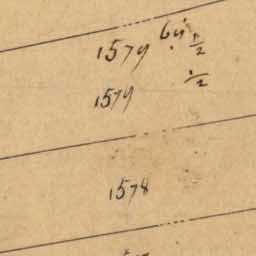 1579 ½
1579 ½
1578